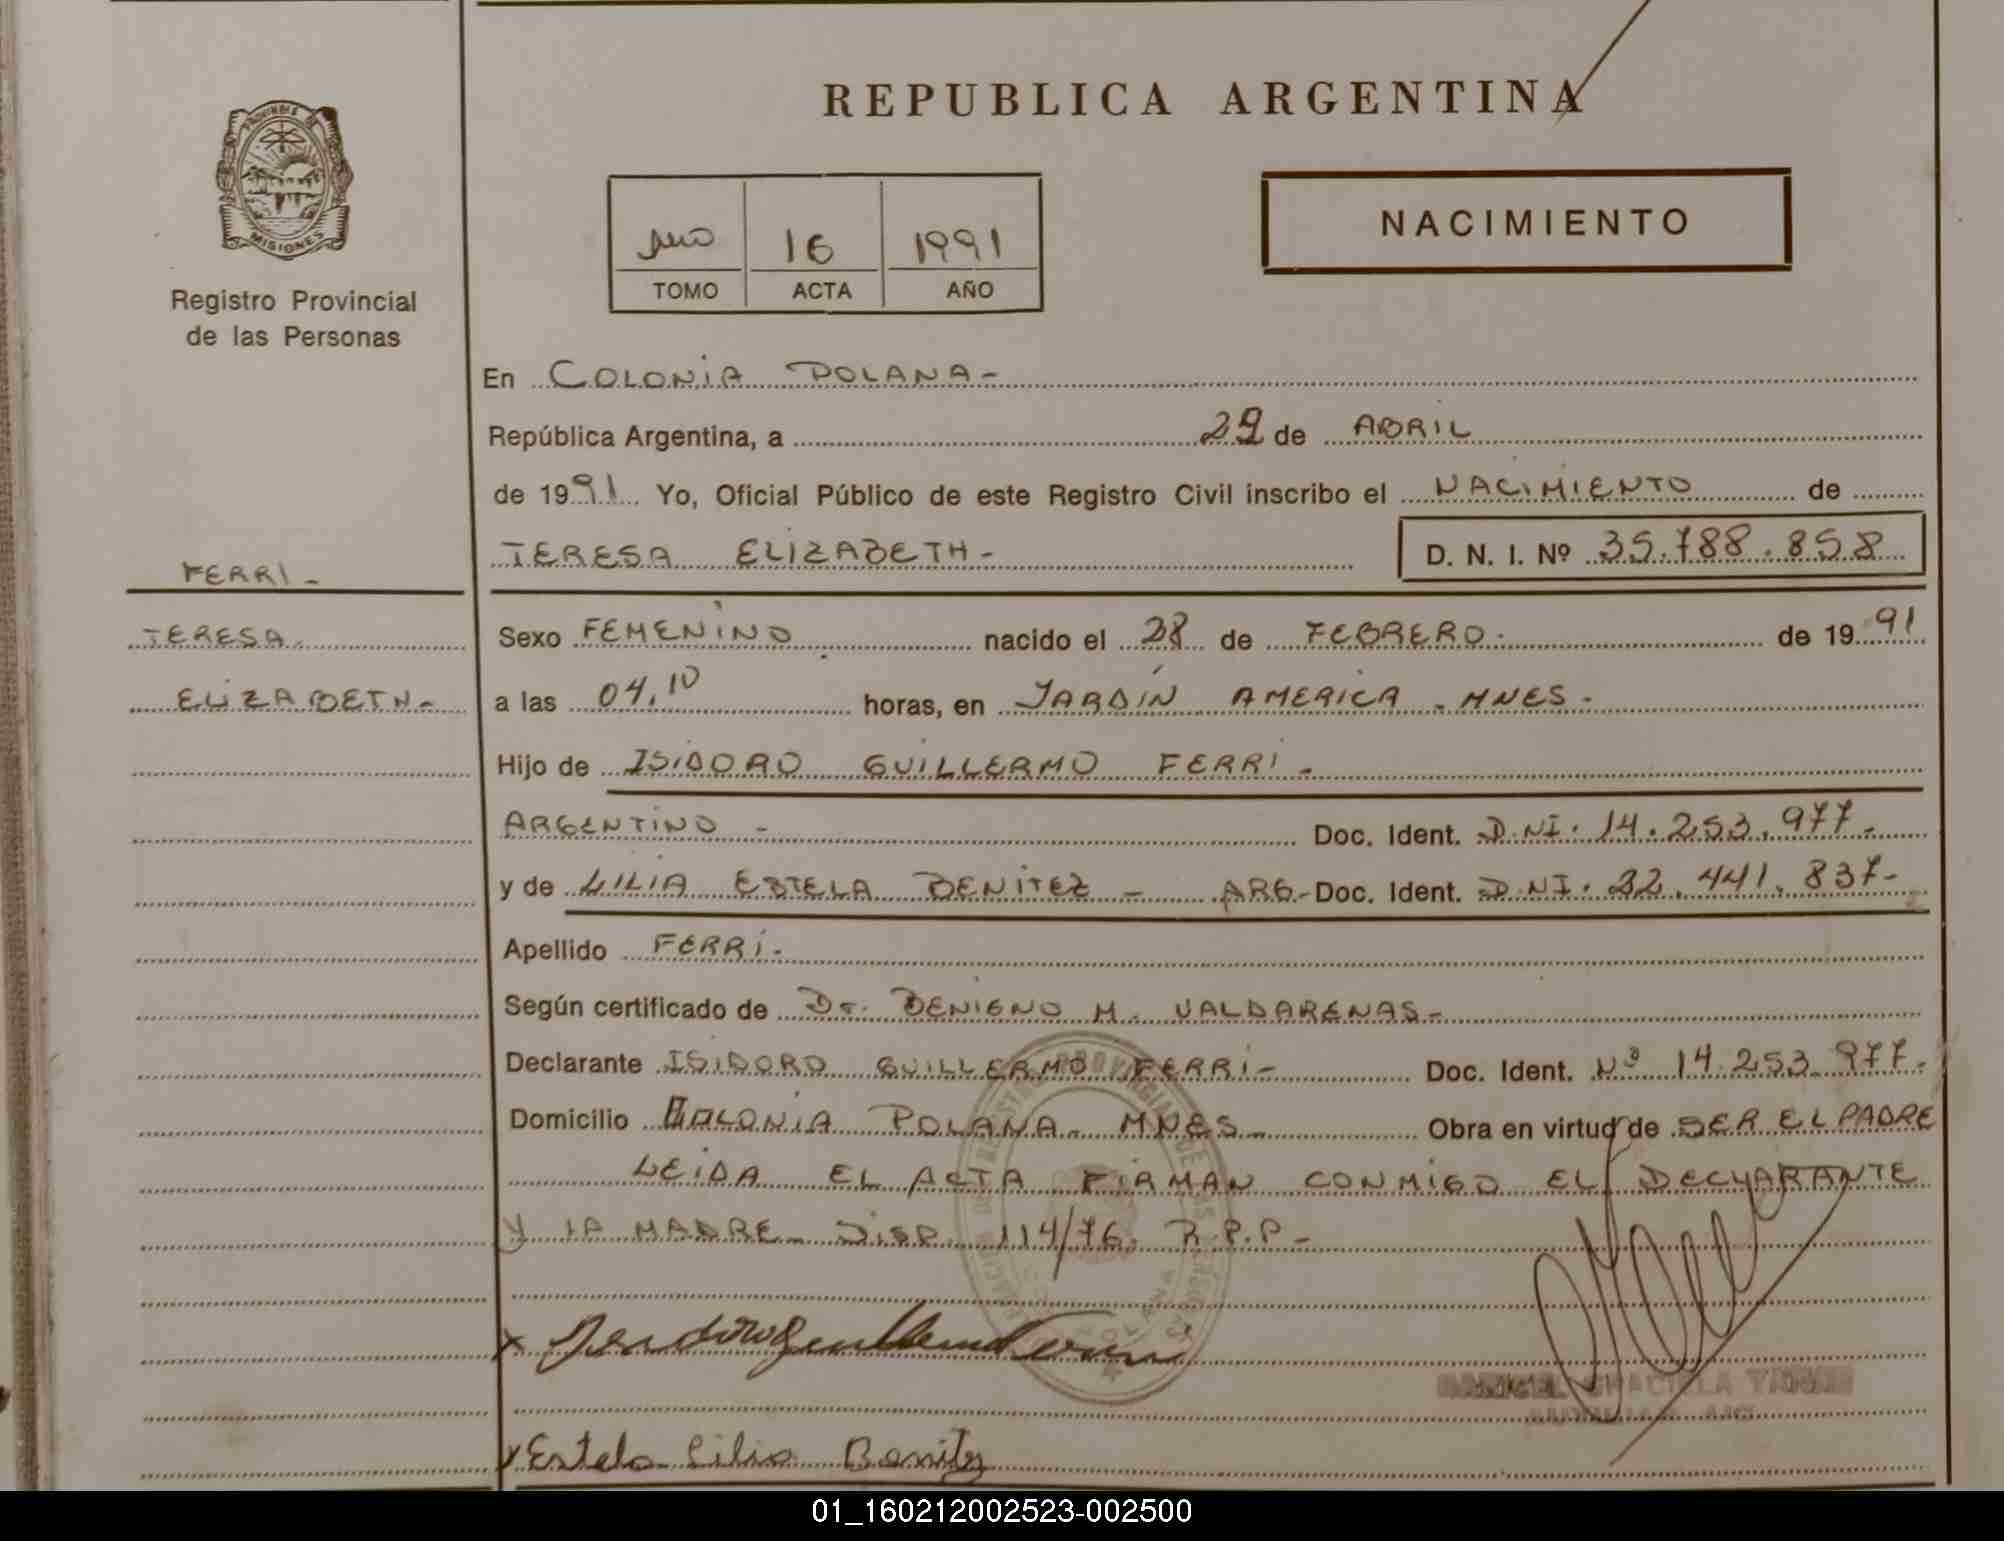 REPUBLICA ARGENTINA
PROVINCIA DE
MISIONES
Registro Provincial
de las Personas
NACIMIENTO
16 1991
TOMO ACTA AÑO
En COLONIA POLANA-
República Argentina, a 29 de ABRIL
de 1991 Yo, Oficial Público de este Registro Civil inscribo el NACIMIENTO de
TERESA ELIZABETH- D. N. I. Nº 35.788.858
FERRI-
TERESA
ELIZABETH-
Sexo FEMENINO nacido el 28 de FEBRERO. de 1991
a las 04,10 horas, en JARDÍN AMERICA - MNES-
Hijo de ISIDORO GUILLERMO FERRI-
ARGENTINO - Doc. Ident. D.NI. 14.253.977-
y de LILIA ESTELA BENITEZ - ARG- Doc. Ident. D.NI. 22.441.837-
Apellido FERRI-
Según certificado de Dr. BENIGNO M. VALDARENAS-
Declarante ISIDORO GUILLERMO FERRI- Doc. Ident. Nº 14.253.977-
Domicilio COLONIA POLANA- MNES- Obra en virtud de SER EL PADRE
LEIDA EL ACTA FIRMAN CONMIGO EL DECLARANTE
Y LA MADRE- DISP. 114/76. R.P.P-
GRACIELA
x Isidoro Guillermo Ferri
x Estela Lilia Benitez
01_160212002523-002500